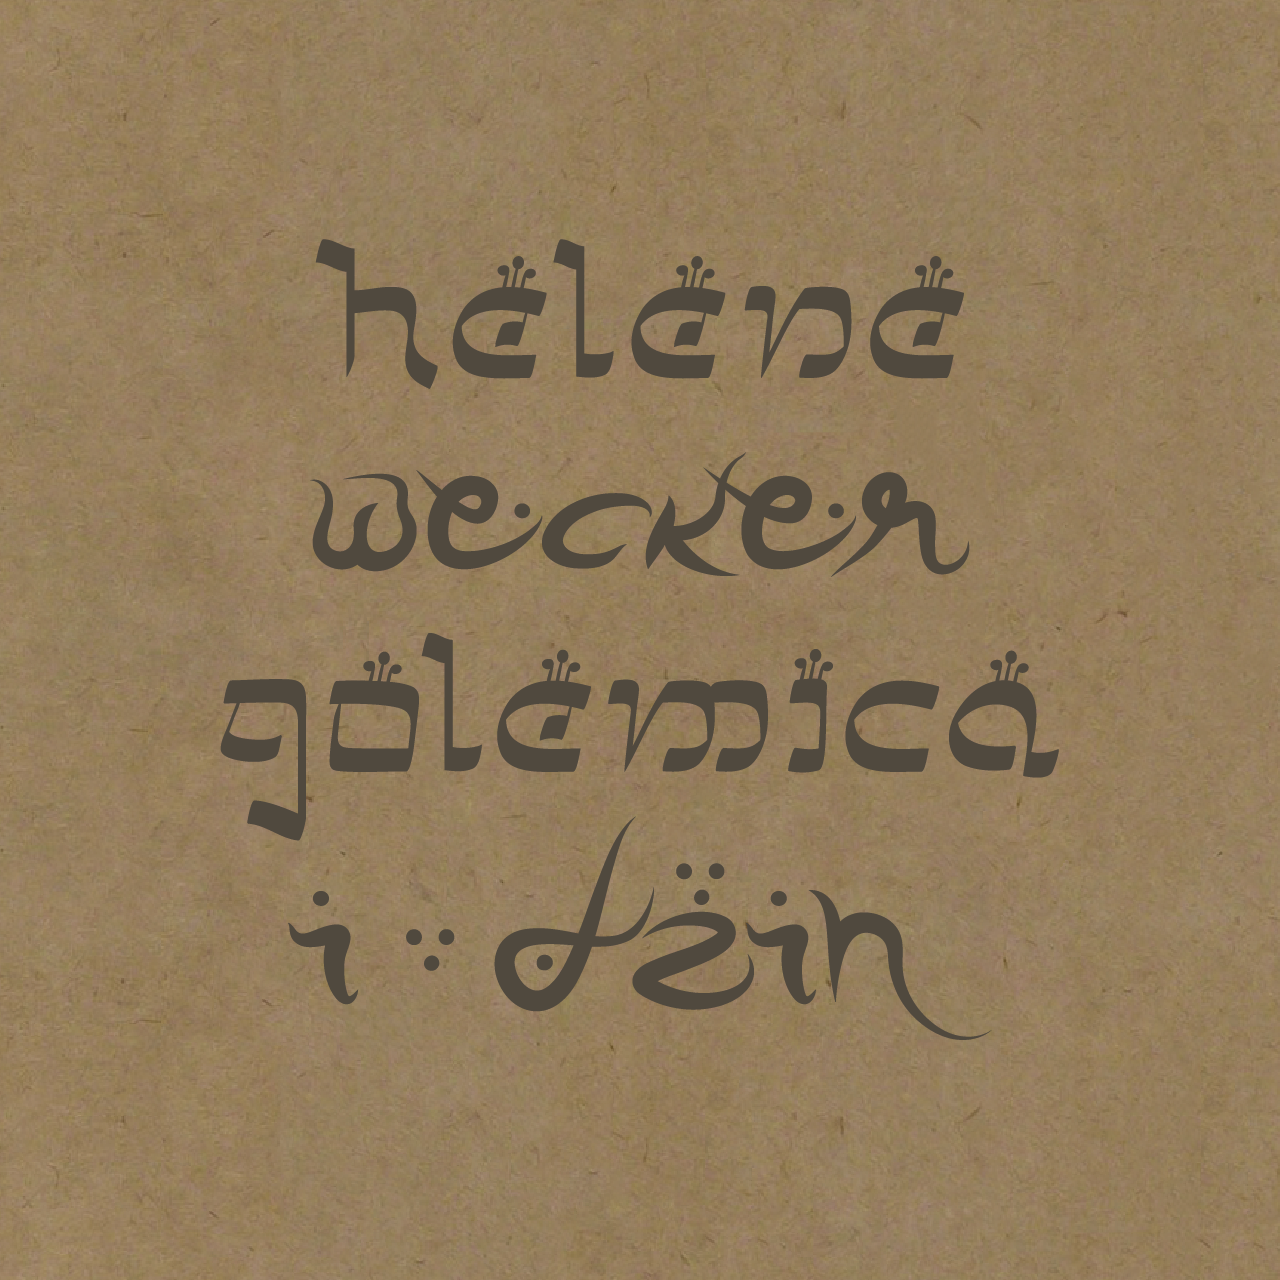 helene
wecker
golemica
i dżin